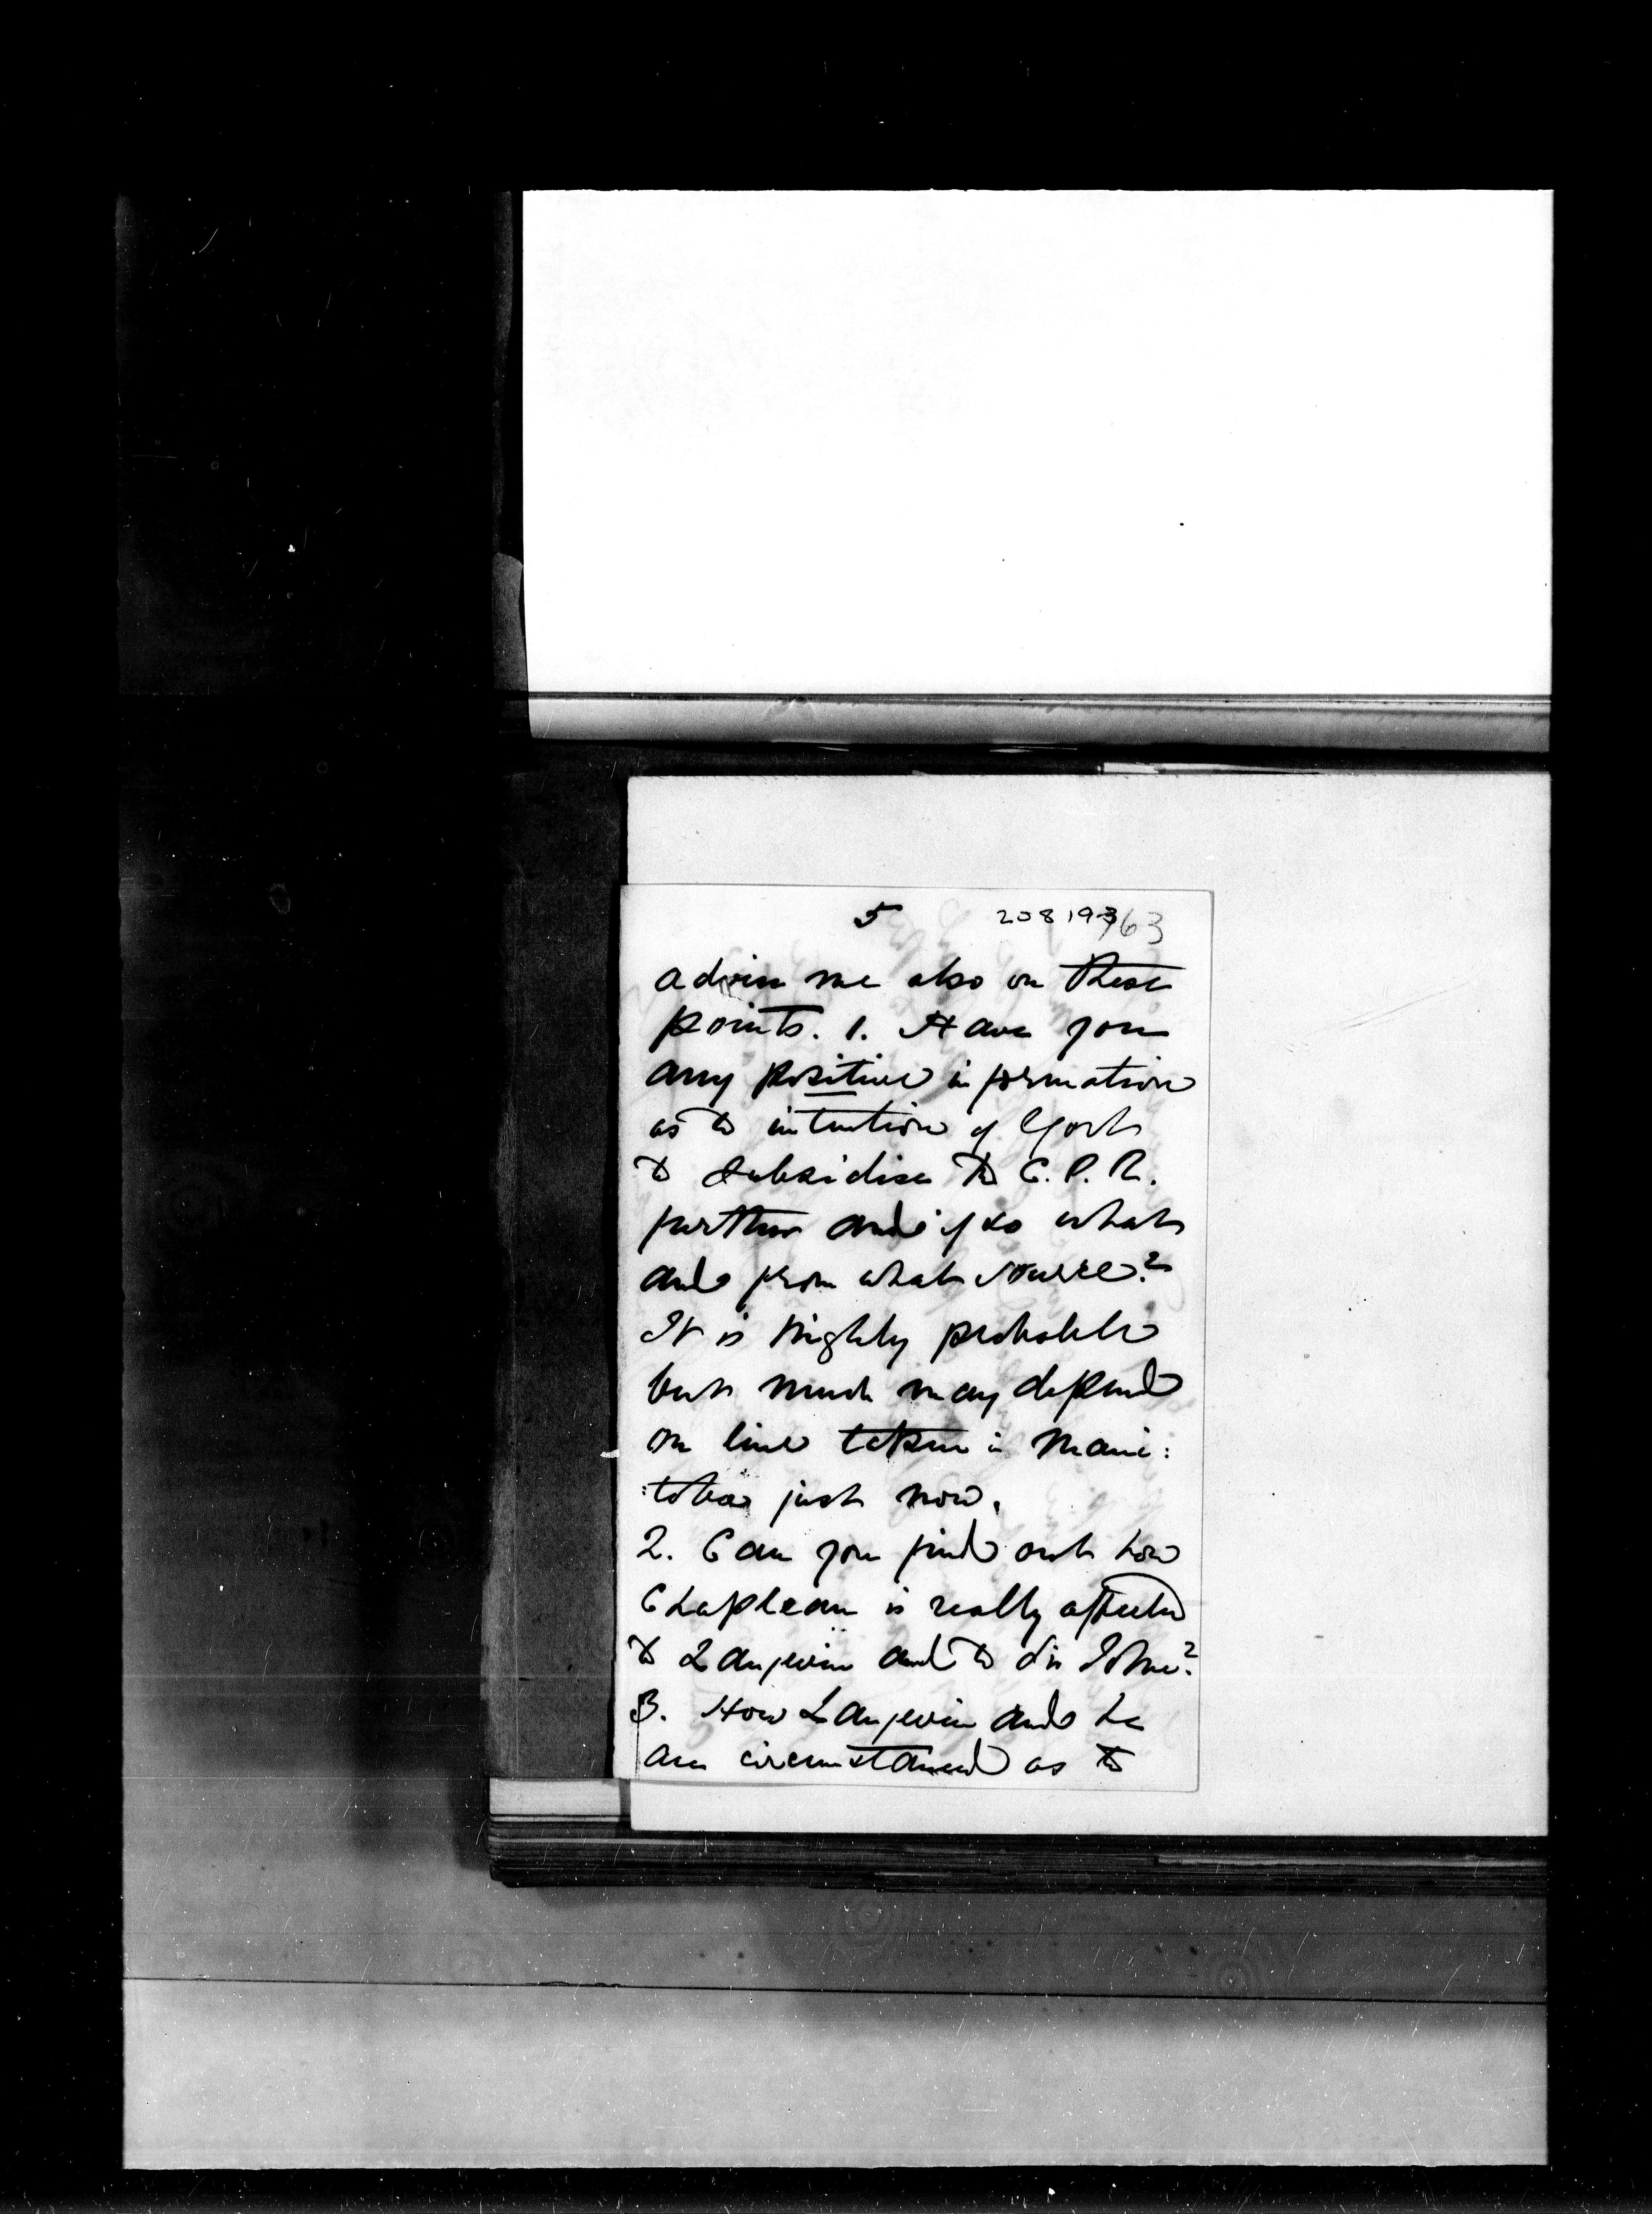 5 208193 763
advise me also on these
points. 1. Have you
any positive information
as to intention of Govt
to subsidise the C.P.R.
further and if so what
and from what source?
It is highly probable
but much may depend
on line taken in Mani:
:toba just now.
2. Can you find out how
Chapleau is really affected
to Langevin and to Sir John?
3. How Langevin and he
are circumstanced as to